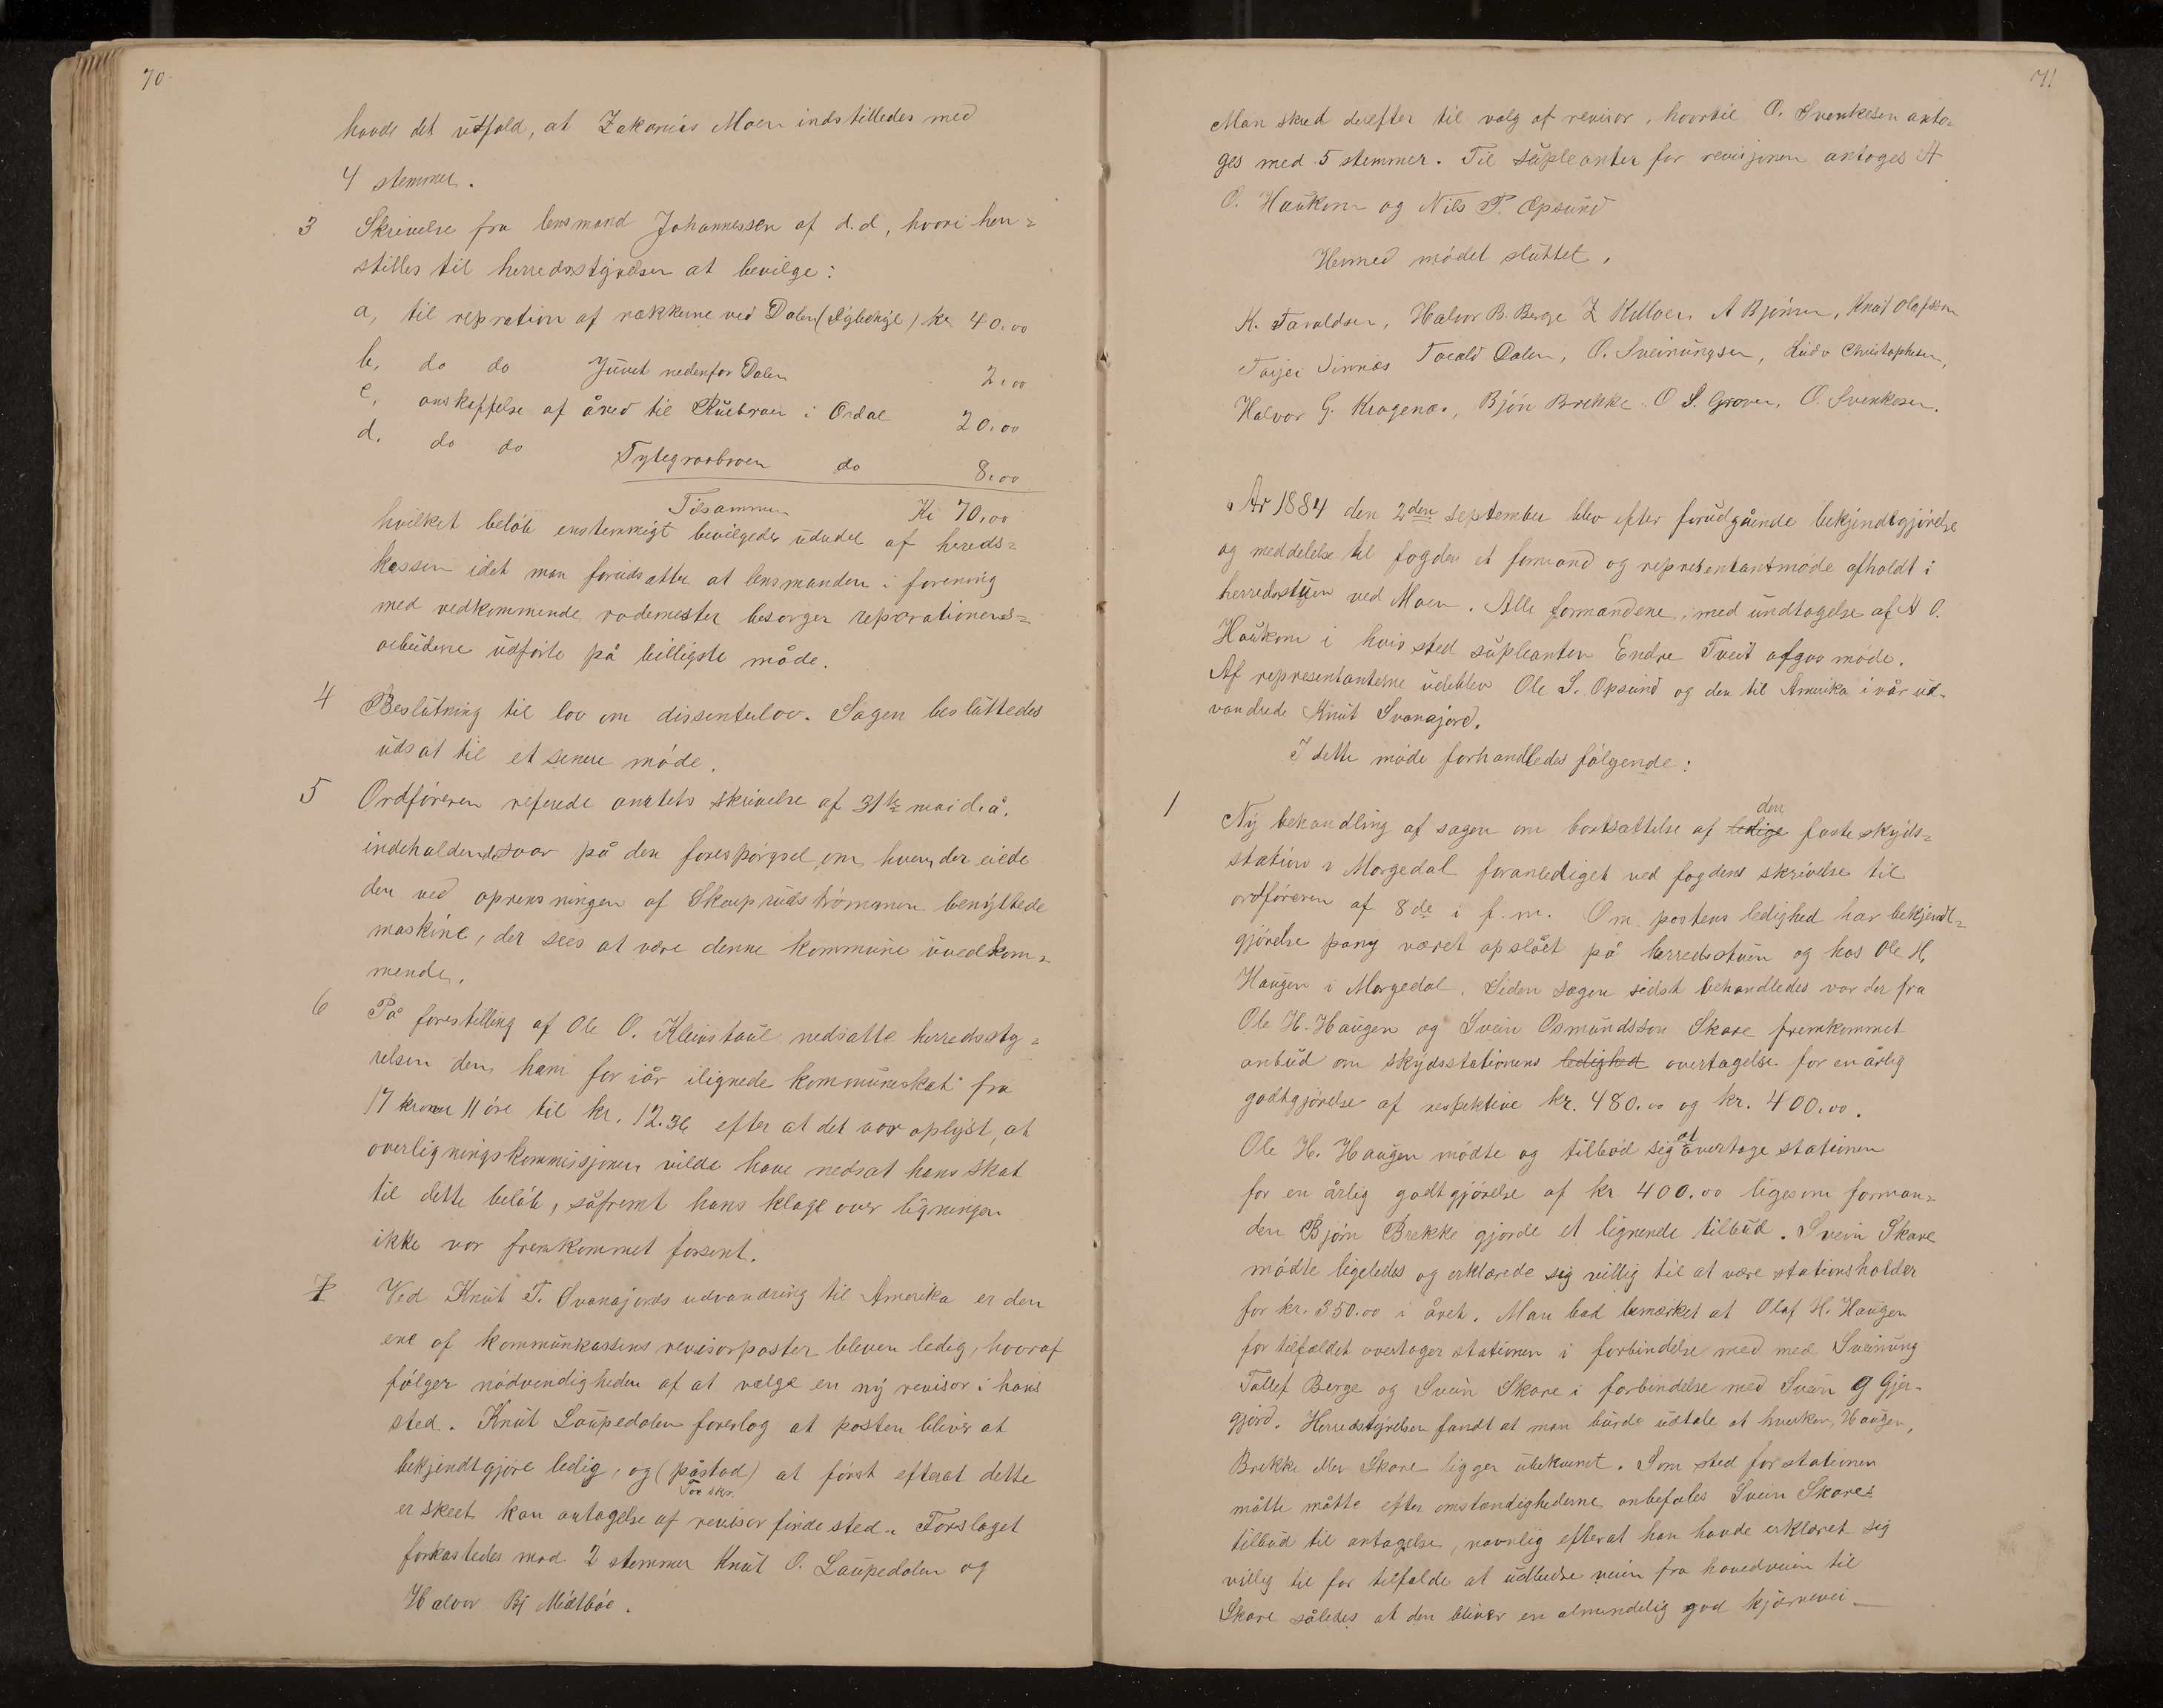 70
havde det utfald, at Zakarias Moen indstilledes med
4 stemmer.
3 Skrivelse fra lensmand Johannessen af d.d, hvori hen=
stilles til herredsstyrelsen at bevilge:
a, til repration af rækkerne ved Dalen () kr 40.00
b, do do Juvet nedenfor Dalen 2.00
c, anskaffelse af åved til i Ordal 20.00
d. do do do 8.00
Tilsammen Kr 70.00
hvilket beløb enstemmigt bevilgedes udredet af hereds=
kassen idet man forudsatte at lensmanden i forening
med vedkommende rodemester besørger reparationens=
arbeiderne udførte på billigste måde.
4 Beslutning til lov om dissenterlov. Sagen besluttedes
udsat til et senere møde.
5 Ordføreren refererede amtets skrivelse af 31te mai d.å.
indeholdende svar på den forespørgsel, om hvem der eiede
den ved oprensningen af benyttede
maskine, der sees at være denne kommune uvedkom=
mende.
6 På forestilling af Ole O. Kleivstaul nedsatte herredssty=
relsen den ham for iår ilignede kommuneskat fra
17 kroner 11 øre til kr. 12.36 efter at det var oplyst, at
overligningskommissjonen vilde have nedsat hans skat
til dette beløb, såfremt hans klage over ligningen
ikke var fremkommet forsent.
7 Ved Knut T. Svanajords udvandring til Amerika er den
ene af kommunkassens revisorposter bleven ledig, hvoraf
følger nødvendigheden af at vælge en ny revisor i hans
sted. Knut Laupedalen foreslog at posten bliver at
bekjendtgjøre ledig, og (påstod) at først efterat dette
er skeet kan antagelse af revisor finde sted. Forslaget
forkastedes mod 2 stemmer Knut O. Laupedalen og
Halvor Bj Midtbøe.
71
Man skred derefter til valg af revisor, hvortil O. Svenkesen anto=
ges med 5 stemmer. Til supleanter for revisjonen antoges A
O. Haukom og Nils P. Opsund
Hermed mødet sluttet.
K. Taraldsen, Halvor B. Berge Z KMoen A Bjønn, Knut Olafsson
Tarjei Sinnes Tarald Dalen, O. Sveinungsen, Ludv Christophersen,
Halvor G. Kragenæs, Bjøn Brekke. O S. Groven, O. Svenkesen.
År 1884 den 2den september blev efter forudgående bekjendtgjørelse
og meddelelse til fogden et formand og representantmøde afholdt i
herredsstuen ved Moen. Alle formandene, med undtagelse af A O.
Haukom i hvis sted supleanten Endre Tveit afgav møde.
Af representanterne udeblev Ole S. Opsund og den til Amerika i vår ud=
vandrede Knut Svanajord.
I dette møde forhandledes følgende:
1 Ny behandling af sagen om bortsættelse af ledige den faste skyds=
station i Morgedal foranlediget ved fogdens skrivelse til
ordføreren af 8de i f.m. Om postens ledighed har bekjendt=
gjørelse været opslået på herredsstuen og hos Ole H.
Haugen i Morgedal. Siden sagen sidst behandledes var der fra
Ole H. Haugen og Svein Osmundsson Skare fremkommet
anbud om skydsstationens ledighed overtagelse for en årlig
godtgjørelse af respektive kr. 480.00 og kr. 400.00.
Ole H. Haugen mødte og tilbød sig at overtage stationen
for en årlig godtgjørelse af kr 400.00 ligesom forman=
den Bjørn Brekke gjorde et lignende tilbud. Svein Skare
mødte ligeledes og erklærede sig villig til at være stationsholder
for kr. 350.00 i året. Man bad bemærket at Olaf H. Haugen
for tilfældet overtager stationen i forbindelse med med Sveinung
Tallef Berge og Svein Skare i forbindelse med Svein G Gjer=
gjord. Herredsstyrelsen fandt at man burde udtale at hverken, Haugen,
Brekke eller Skare ligger ubekvemt. Som sted for stationen
måtte måtte efter omstændighederne anbefales Svein Skares
tilbud til antagelse, navnlig efterat han havde erklæret sig
villig til for tilfælde at udbedre veien fra hovedveien til
Skare således at den bliver en almindelig god kjørevei.